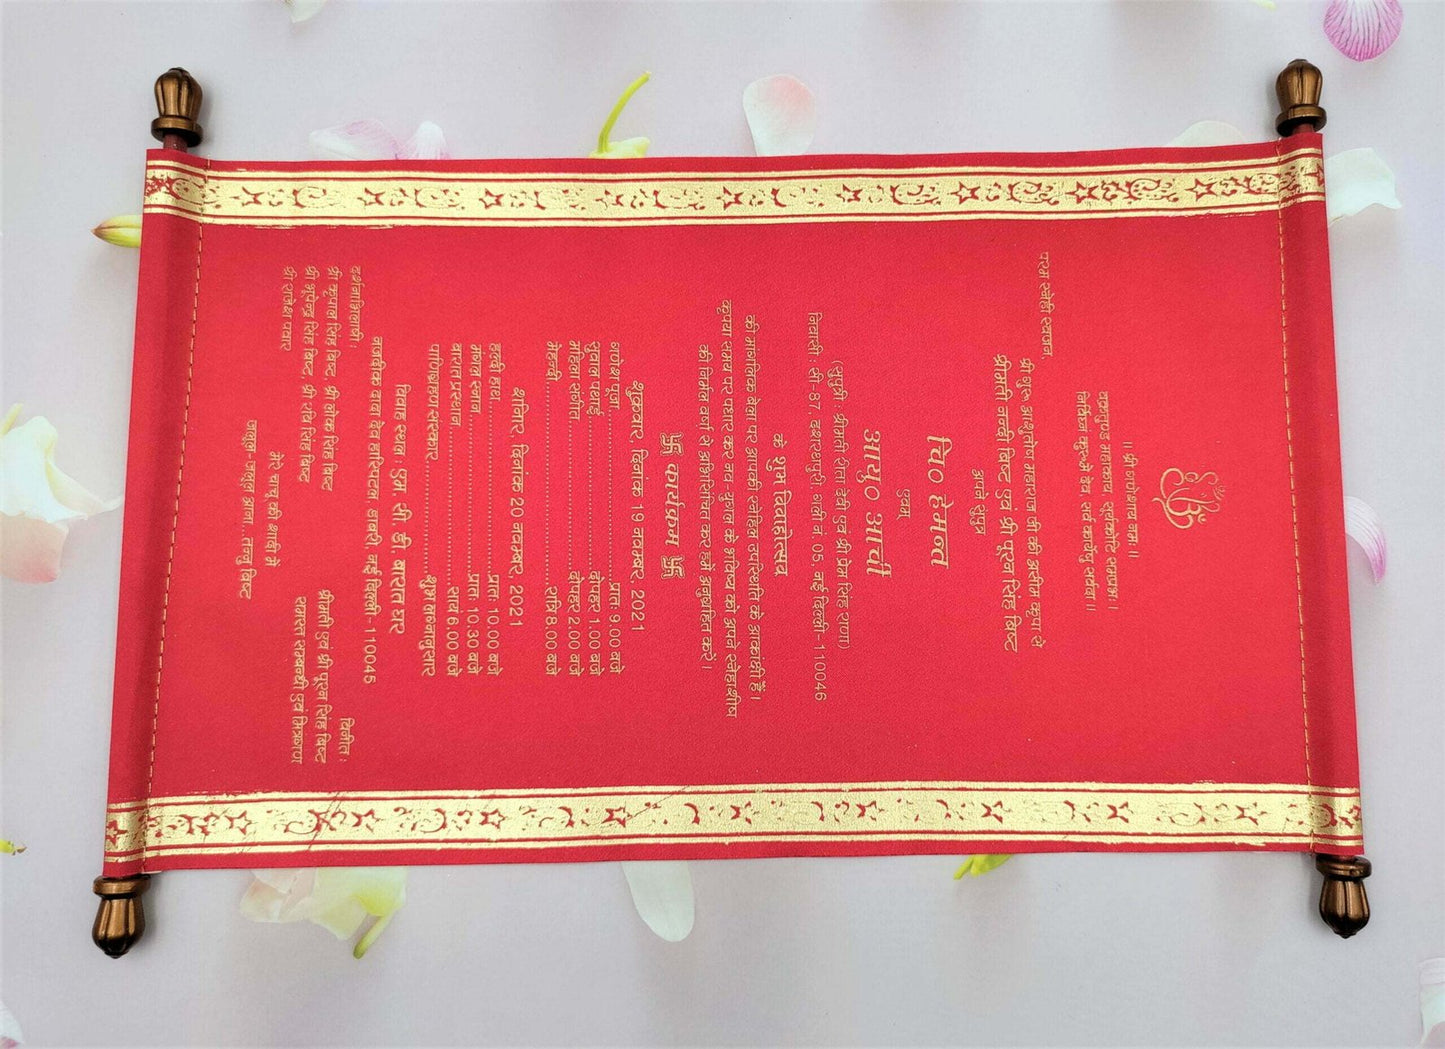 ।। श्री गणेशाय नमः ।।
वक्रतुण्ड महाकाय सूर्यकोटि समप्रभः।
निर्विघ्नं कुरुमे देव सर्व कार्येषु सर्वदा ।।
परम स्नेही स्वजन,
श्री गुरु आशुतोष महाराज जी की असीम कृपा से
श्रीमती नन्दी बिष्ट एवं श्री पूरन सिंह बिष्ट
अपने सुपुत्र
चि० हेमन्त
एवम्
आयु० आरची
(सुपुत्री : श्रीमती शैला देवी एवं श्री प्रेम सिंह राणा)
निवासी : सी-87, दशरथपुरी, गली नं 05, नई दिल्ली- 110046
के शुभ विवाहोत्सव
की मांगलिक बेला पर आपकी स्नेहिल उपस्थिति के आकांक्षी हैं।
कृपया समय पर पधार कर नव युगल के भविष्य को अपने स्नेहाशीष
की निर्मल वर्षा से अभिसिंचित कर हमें अनुग्रहित करें।
卐 कार्यक्रम 卐
शुक्रवार, दिनांक 19 नवम्बर, 2021
गणेश पूजा.............................प्रातः 9.00 बजे
सुवाल पथाई.............................दोपहर 1.00 बजे
महिला संगीत.............................दोपहर 2.00 बजे
मेहन्दी.............................रात्रि 8.00 बजे
शनिवार, दिनांक 20 नवम्बर, 2021
हल्दी हाथ.............................प्रातः 10.00 बजे
मंगल स्नान.............................प्रातः 10.30 बजे
बारात प्रस्थान.............................सायं 6.00 बजे
पाणिग्रहण संस्कार.............................शुभ लग्नानुसार
विवाह स्थल : एम. सी. डी. बारात घर
नजदीक बाबा हरिदास डाबरी, नई दिल्ली- 110045
दर्शनाभिलाषी :
श्री कृपाल सिंह बिष्ट श्री लोक सिंह बिष्ट
श्री भूपेन्द्र सिंह बिष्ट श्री रवि सिंह बिष्ट
श्री राजेश पवार
विनीत :
श्रीमती एवं श्री पूरन सिंह बिष्ट
समस्त सम्बन्धी एवं मित्रगण
मेरे चाचू की शादी में
जलूल जलूल आना..तनु बिष्ट